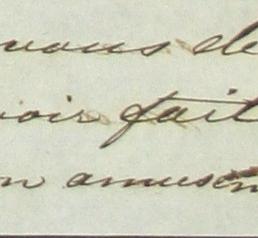 vous de
voir fait
on amusem